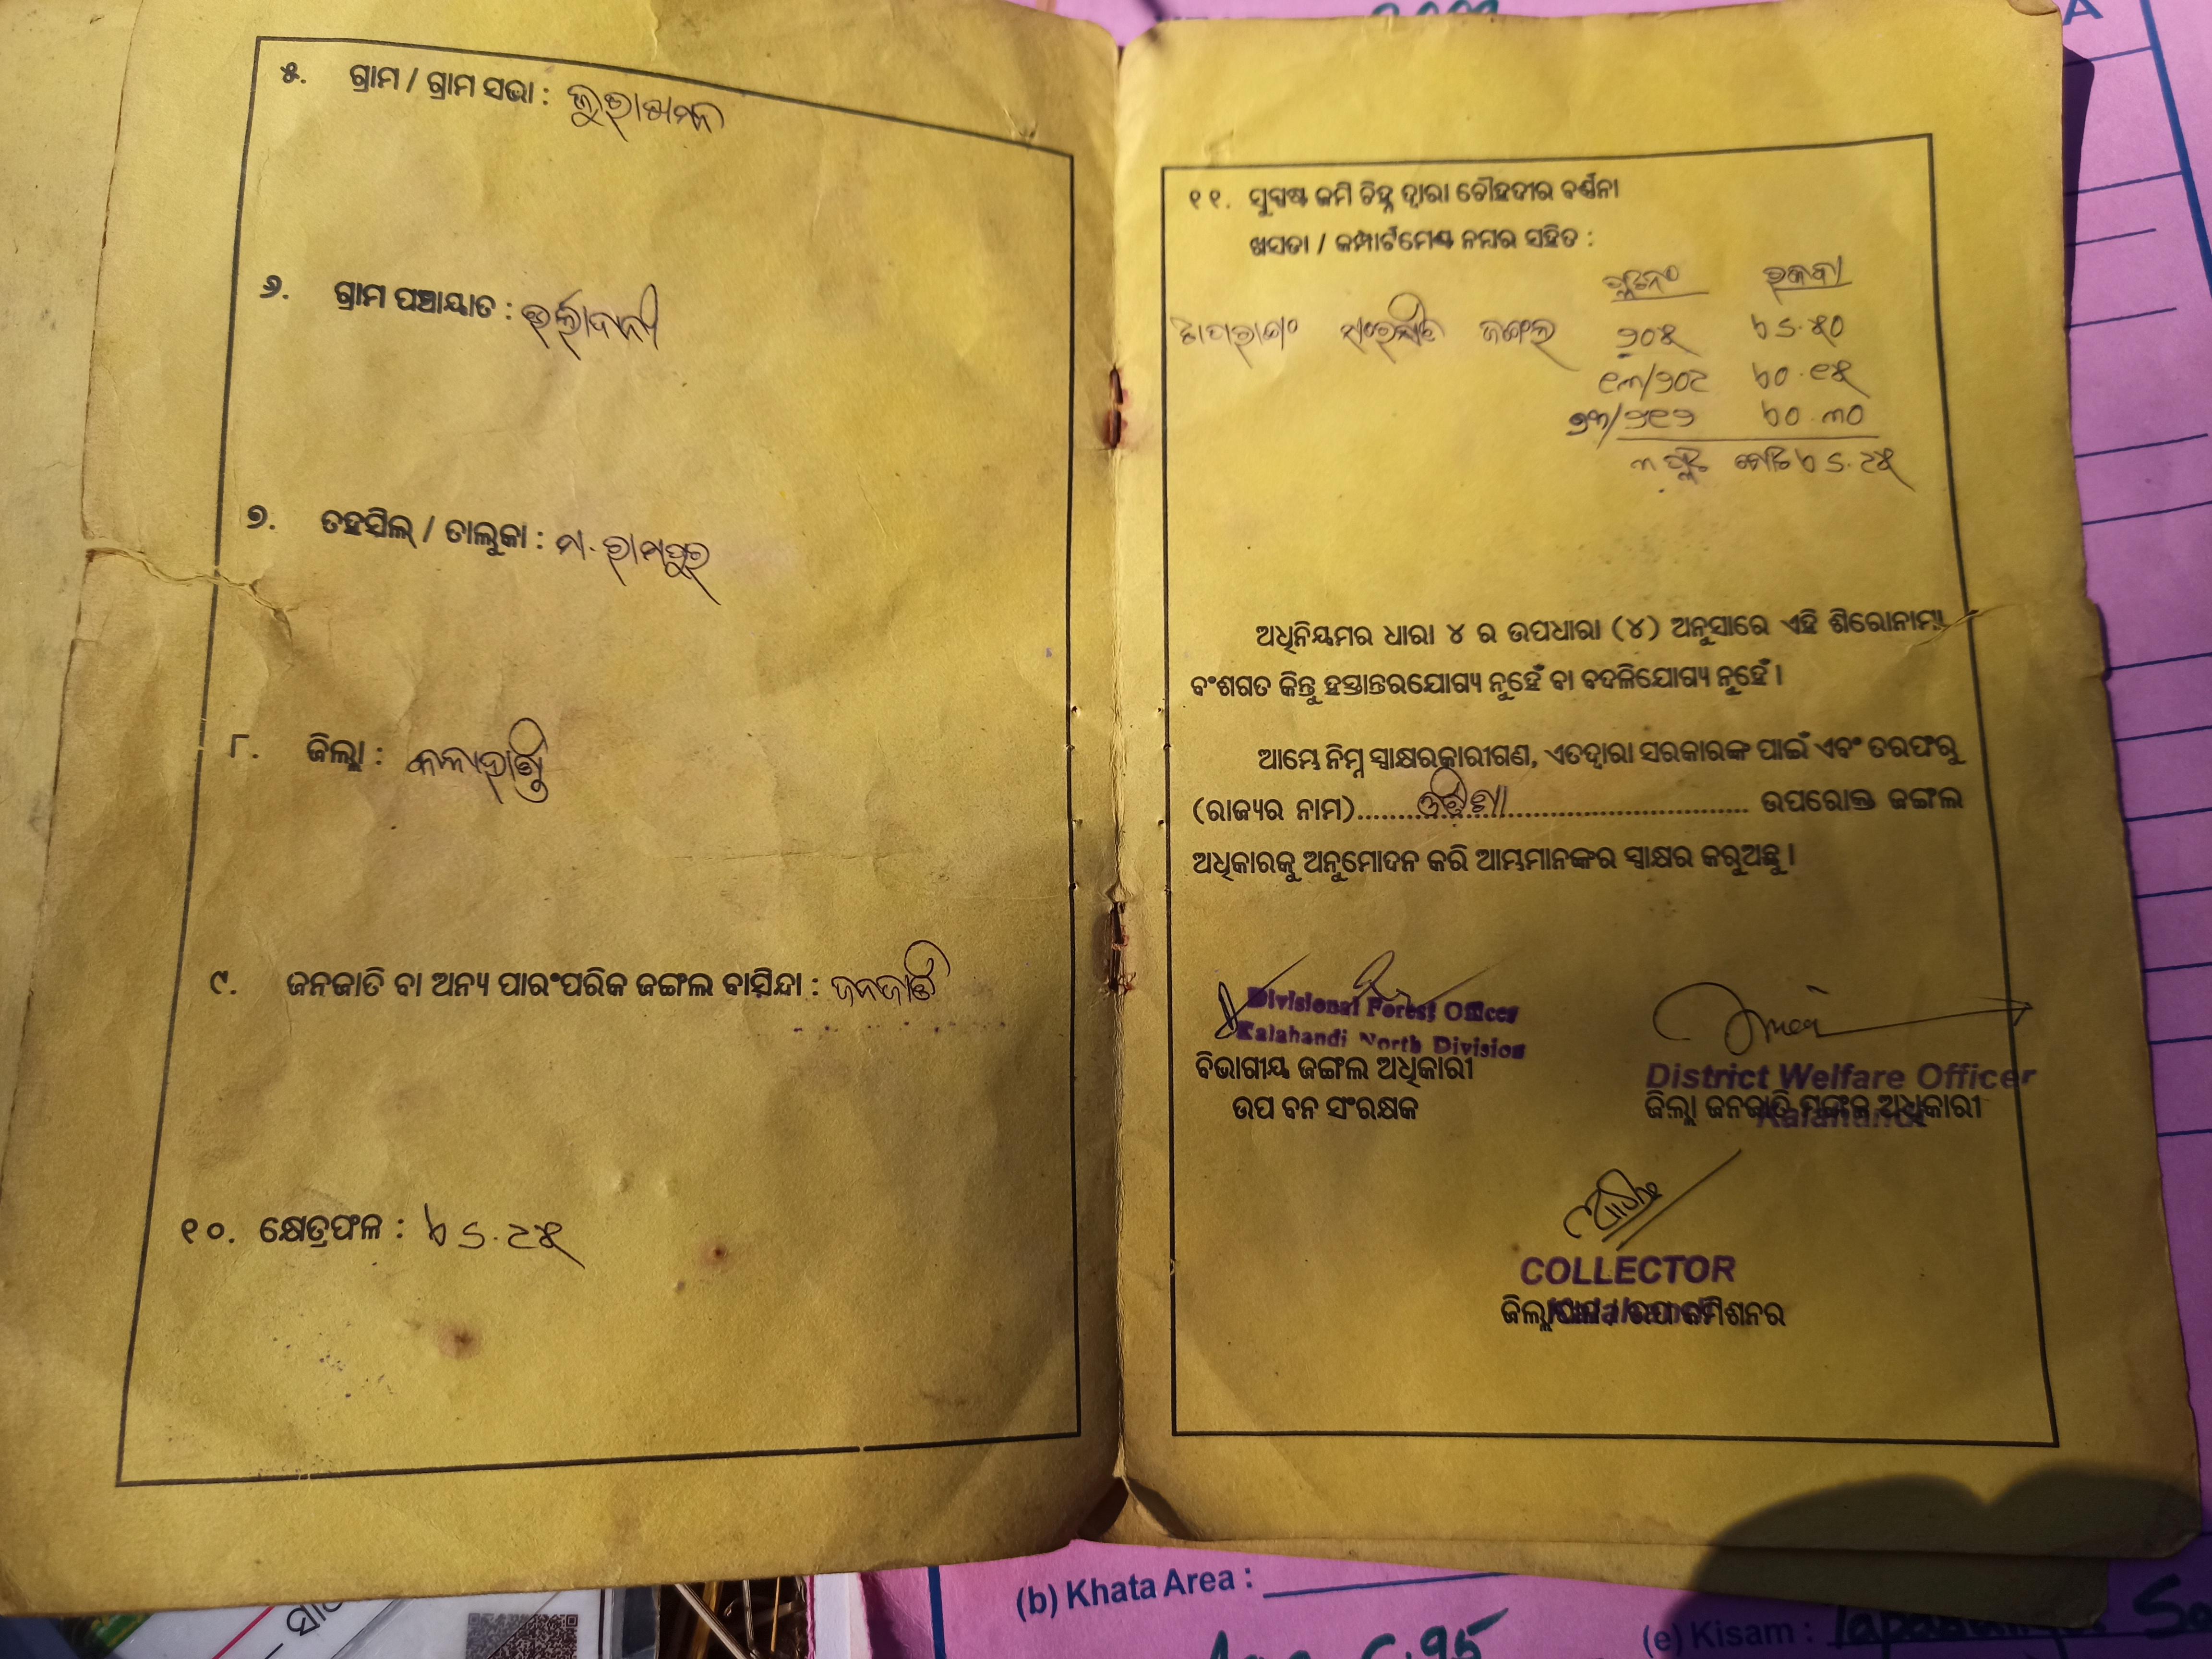 ୫. ଗ୍ରାମ / ଗ୍ରାମ ସଭା :
୬. ଗ୍ରାମ ପଞ୍ଚାୟାତ :
୭. ତହସିଲ୍ / ତାଲୁକା : ମ. ରାମପୁର
୮. ଜିଲ୍ଲା : କଳାହାଣ୍ଡି
୯. ଜନଜାତି ବା ଅନ୍ୟ ପାରଂପରିକ ଜଙ୍ଗଲ ବାସିନ୍ଦା : ଜନଜାତି
୧୦. କ୍ଷେତ୍ରଫଳ : ଏ ୧.୮୫
୧୧. ସୁସ୍ପଷ୍ଟ ଜମି ଚିହ୍ନ ଦ୍ଵାରା ଚୌହଦୀର ବର୍ଣ୍ଣନା
ଖସଡା / କମ୍ପାର୍ଟମେଣ୍ଟ ନମ୍ବର ସହିତ :
ପ୍ଲଟନଂ ରକବା
ସଂରକ୍ଷିତ ଜଙ୍ଗଲ
୩ ପ୍ଲଟ ମୋଟ
ଅଧିନିୟମର ଧାରା ୪ ର ଉପଧାରା (୪) ଅନୁସାରେ ଏହି ଶିରୋନାମା
ବଂଶଗତ କିନ୍ତୁ ହସ୍ତାନ୍ତରଯୋଗ୍ୟ ନୁହେଁ ବା ବଦଳିଯୋଗ୍ୟ ନୁହେଁ ।
ଆମ୍ଭେ ନିମ୍ନ ସ୍ୱାକ୍ଷରକାରୀଗଣ, ଏତଦ୍ୱାରା ସରକାରଙ୍କ ପାଇଁ ଏବଂ ତରଫରୁ
(ରାଜ୍ୟର ନାମ)......ଓଡ଼ିଶା...... ଉପରୋକ୍ତ ଜଙ୍ଗଲ
ଅଧିକାରକୁ ଅନୁମୋଦନ କରି ଆମ୍ଭମାନଙ୍କର ସ୍ୱାକ୍ଷର କରୁଅଛୁ ।
Divisional Forest Officer
Kalahandi North Division
ବିଭାଗୀୟ ଜଙ୍ଗଲ ଅଧିକାରୀ
ଉପ ବନ ସଂରକ୍ଷକ
District Welfare Officer
ଜିଲ୍ଲା ଜନଜାତି ମଙ୍ଗଳ ଅଧିକାରୀ
Kalahandi
COLLECTOR
ଜିଲ୍ଲାପାଳ / ଉପ କମିଶନର
(b) Khata Area :
(e) Kisam :